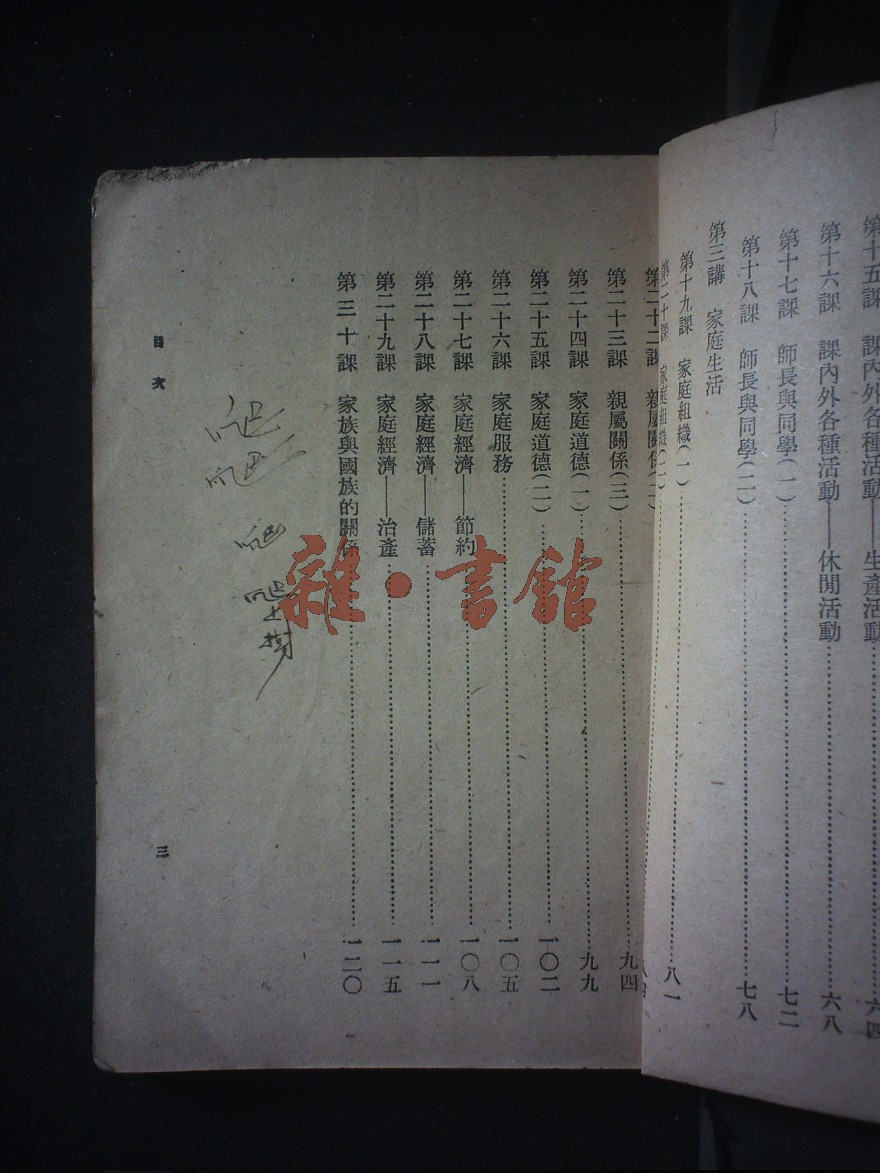 第十五課　課內外各種活動——生產活動……六四
第十六課　課內外各種活動——休閒活動……六八
第十七課　師長與同學(一)……七二
第十八課　師長與同學(二)……七八
第三講　家庭生活
第十九課　家庭組織(一)……八一
第二十課　家庭組織(二)……
第二十二課　親屬關係(二)
第二十三課　親屬關係(三)……九四
第二十四課　家庭道德(一)……九九
第二十五課　家庭道德(二)……一〇二
第二十六課　家庭服務……一〇五
第二十七課　家庭經濟——節約……一〇八
第二十八課　家庭經濟——儲蓄……一一一
第二十九課　家庭經濟——治產……一一五
第三十課　家族與國族的關係……一二〇
目次
三
雜·書館